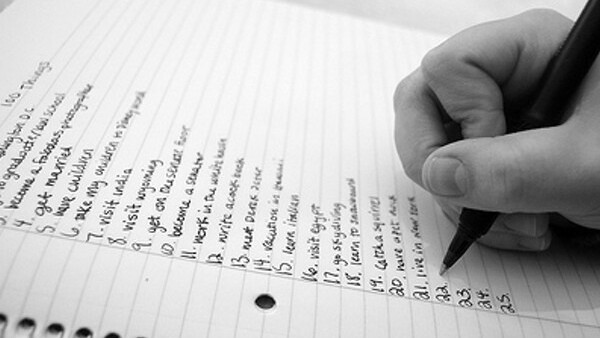 100 Things
become a fabulous photographer
4. get married
5. have children
6. take my children to disney world
7. visit India
8. visit wyoming
9. get on the senate floor
10. become a senator
11. work in the white house
12. write a cook book
13. meet Derek Jeter
14. vacation in Hawaii
15. learn Italian
16. visit Egypt
17. go skydiving
18. learn to snowboard
19. catch a squirrel
20. have a pet duck
21. live in new york
22.
23.
24.
25.